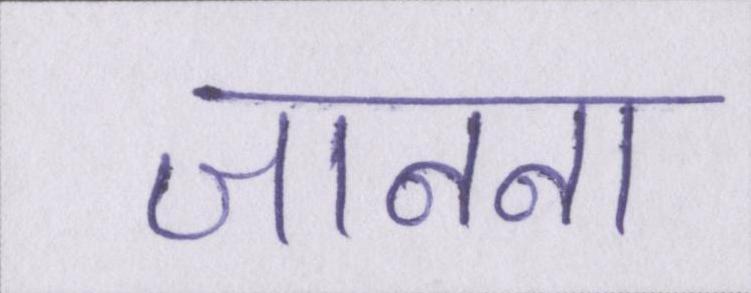 जानना